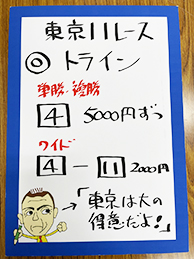 東京11レース
◎ トライン
単勝・複勝
4 5000円ずつ
ワイド
4 － 11 2000円
「東京は大の
得意だよ!」